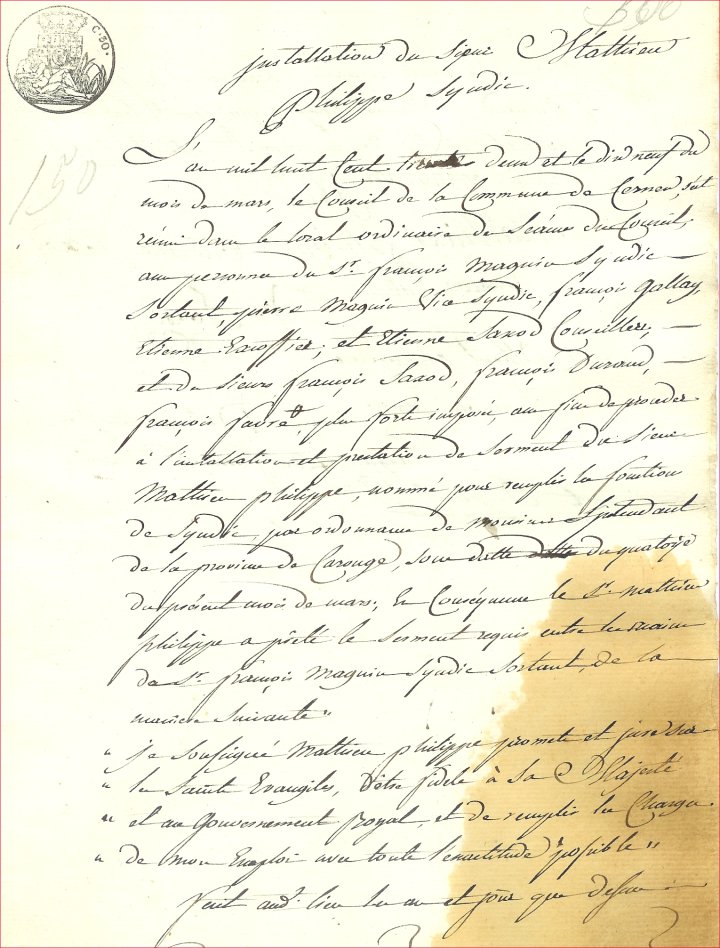 C. 50.
150
installation du sieur Mathieu
Philippe Syndic.
L'an mil huit Cent trente deux et le dix neuf du
mois de mars, le Conseil de la Commune de Cernex, s'est
réuni dans le local ordinaire des Séances du Conseil,
aux personnes du Sr. françois Magnin Syndic
Sortant, pierre Magnin Vice Syndic, françois Gallay,
Etienne Excoffier, et Etienne Saxod Conseillers, —
et des sieurs françois Saxod, françois Durand, —
françois favre, plus forts imposés, aux fins de procéder
à l'installation et prestation de Serment du Sieur
Mathieu philippe, nommé pour remplir les fonctions
de Syndic, par ordonnance de monsieur l'jntendant
de la province de Carouge, sous datte du quatorze
du présent mois de mars, En Conséquence le Sr. mathieu
philippe a prêté le Serment requis entre les mains
du Sr. françois Magnin Syndic Sortant, de la
manière Suivante "
" je Soussigné Mathieu philippe promets et jure sur
" les Saints Evangiles, d'être fidèle à Sa Majesté
" et au Gouvernement Royal, et de remplir les Charges
" de mon Emploi avec toute l'exactitude possible "
fait aud. lieu les an et jour que dessus —